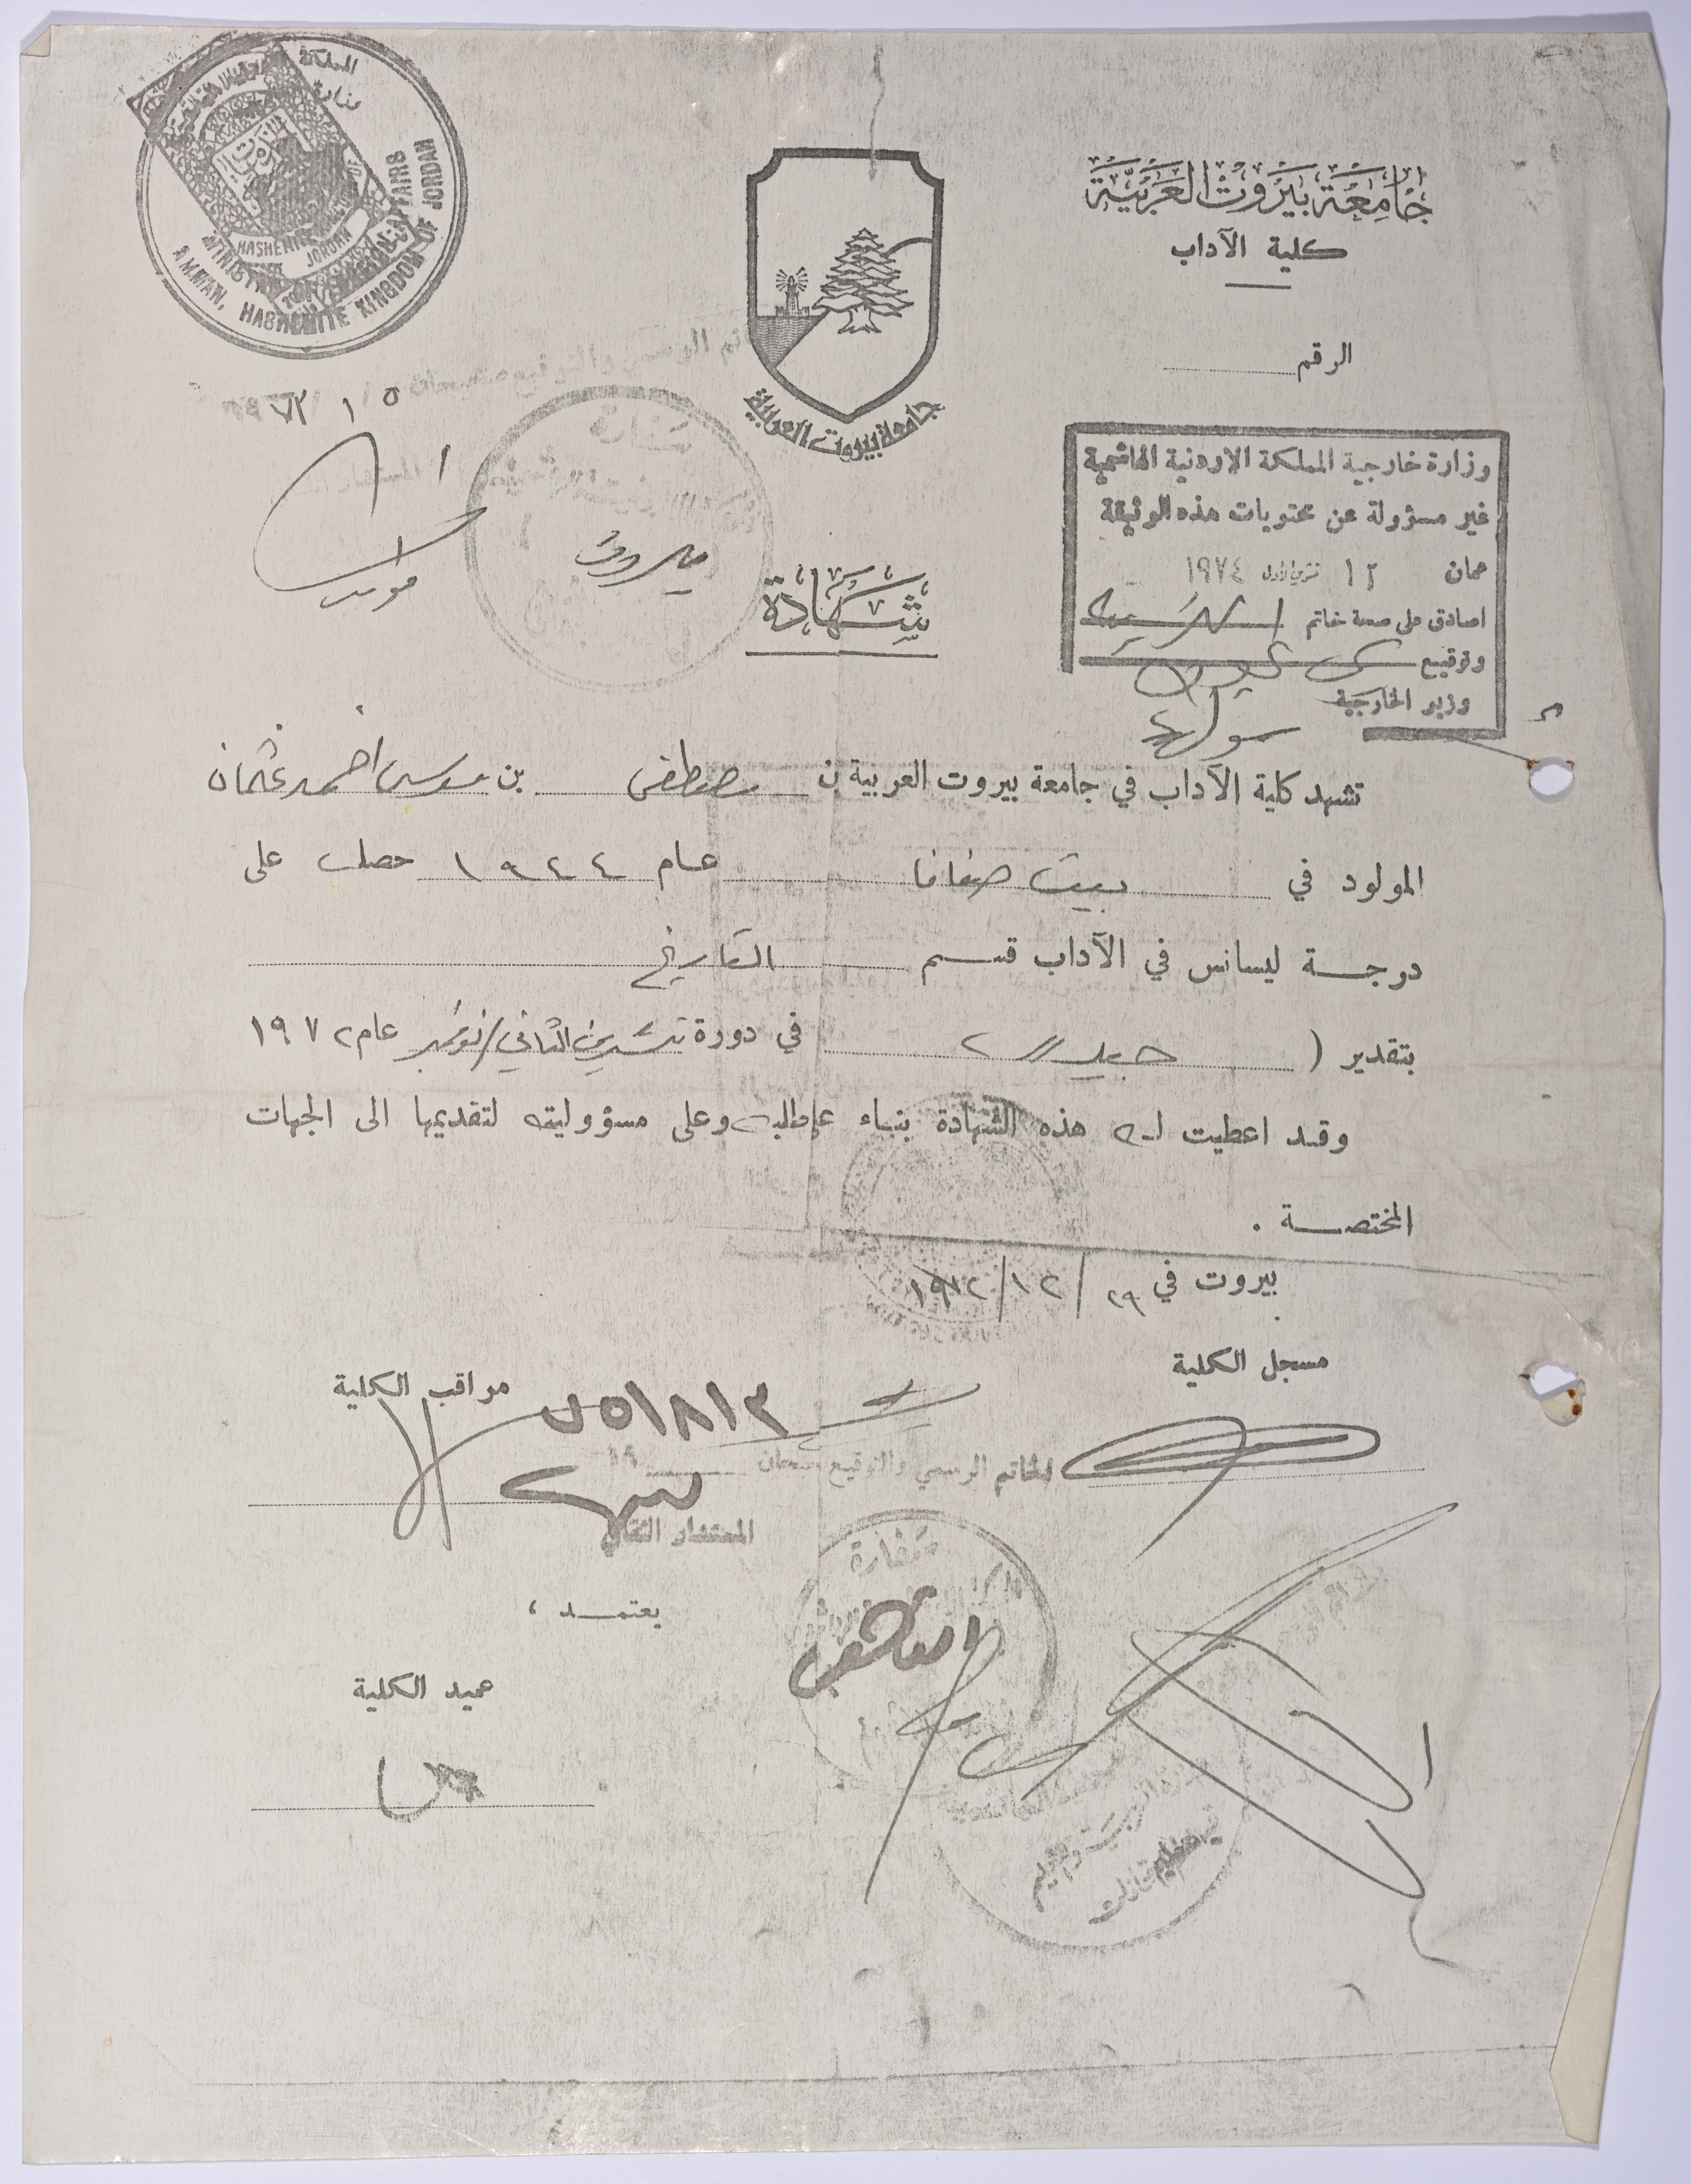 جامعة بيروت العربية
كلية الآداب
الرقم
جامعة بيروت العربية
المملكة
وزارة
AMMAN, HASHEMITE KINGDOM OF JORDAN
وزارة خارجية المملكة الاردنية الهاشمية
غير مسؤولة عن محتويات هذه الوثيقة
عمان ١٢ تشرين الاول ١٩٧٤
اصادق على صحة خاتم
وتوقيع
وزير الخارجية
بيروت
شهادة
تشهد كلية الآداب في جامعة بيروت العربية ن مصطفى بن موسى احمد عثمان
المولود في بيت صفافا عام ١٩٤٤ حصل على
درجة ليسانس في الآداب قسم التاريخ
بتقدير ( جيد ) في دورة تشرين الثاني/نوفمبر عام ١٩٧٢
وقد اعطيت له هذه الشهادة بناء على طلبه وعلى مسؤوليته لتقديمها الى الجهات
المختصة .
بيروت في ٢٩ / ١٢ / ١٩٧٢
مسجل الكلية
مراقب الكلية
الخاتم الرسمي والتوقيع صحيحان ١٩
المستشار الثقافي
سفارة
يعتمد ،
عميد الكلية